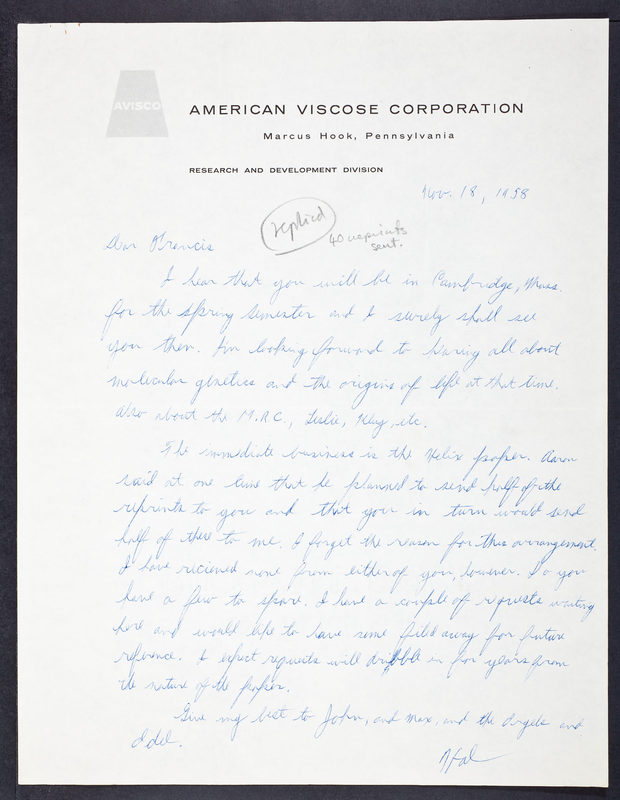 AVISCO
AMERICAN VISCOSE CORPORATION
Marcus Hook, Pennsylvania
RESEARCH AND DEVELOPMENT DIVISION
Nov. 18, 1958
replied
40 reprints
sent.
Dear Francis
I hear that you will be in Cambridge, Mass.
for the spring semester and I surely shall see
you then. Im looking forward to hearing all about
molecular genetics and the origins of life at that time.
Also about the M.R.C., Leslie, Klug, etc.
The immediate business is the Helix paper. Aaron
said at one time that he planned to send half of the
reprints to you and that you in turn would send
half of these to me. I forget the reason for this arrangement.
I have recieved none from either of you, however. Do you
have a few to spare. I have a couple of requests waiting
here and would like to have some filed away for future
reference. I expect requests will dribble in for years from
the nature of the paper.
Give my best to John, and Max, and the and
Odel.
Hal